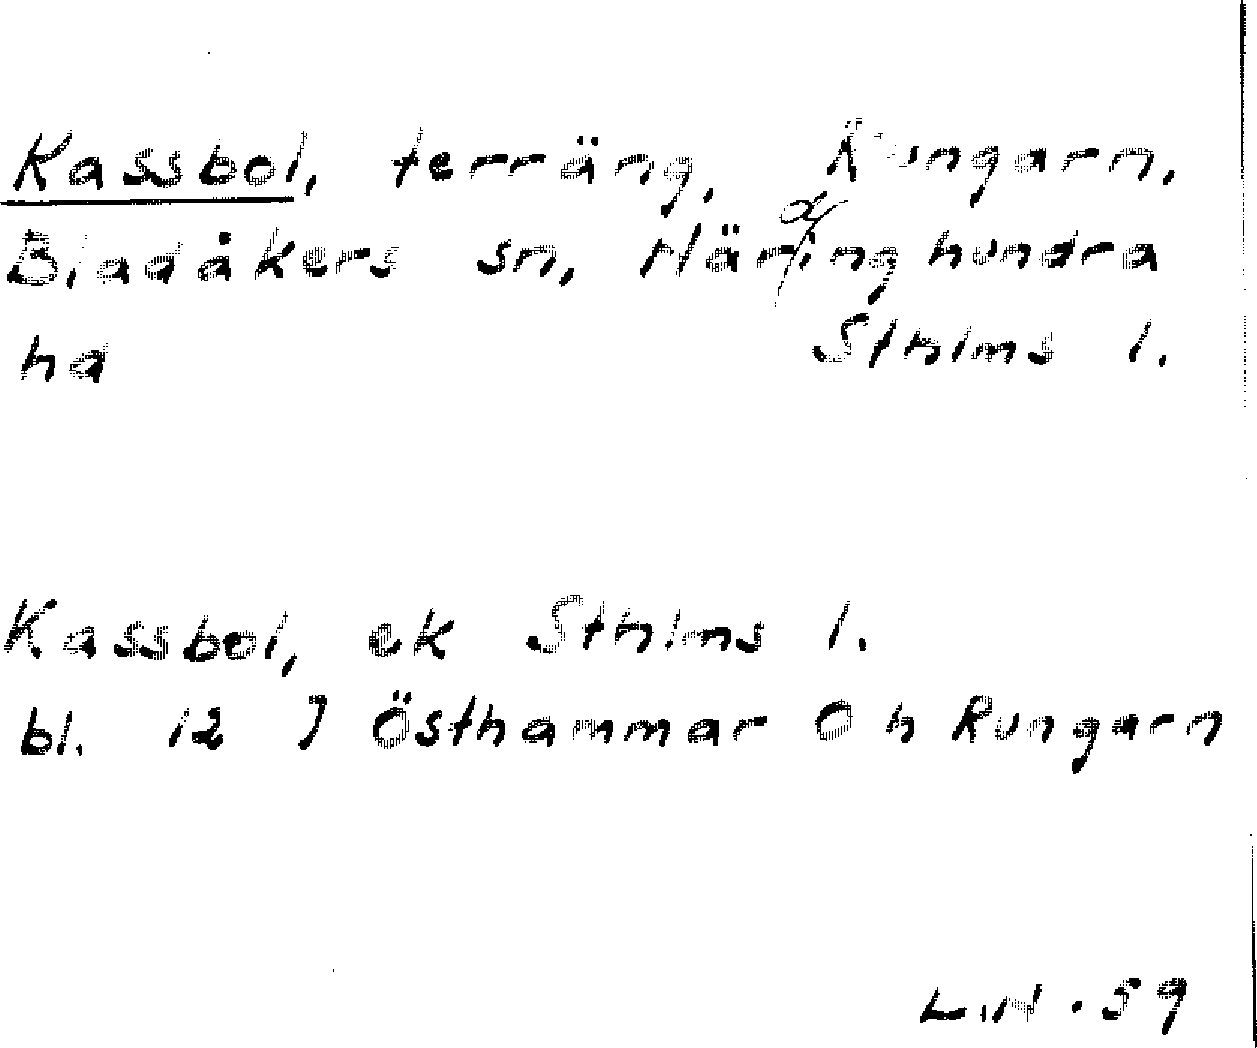 Kassbol, terräng, Rungarn,
Bladåkers sn, Närdinghundra
ha Sthlms l.
Kassbol, ek Sthlms l.
bl. 12 J Östhammar Ö h Rungarn
L.H. 59